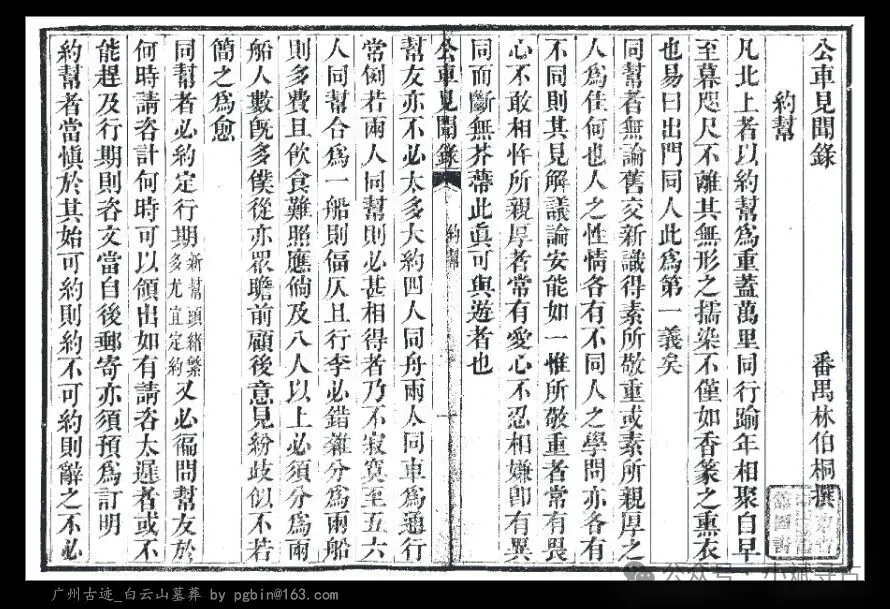 公車見聞錄
番禺林伯桐撰
約幫
凡北上者以約幫爲重蓋萬里同行踰年相聚自早
至暮咫尺不離其無形之擩染不僅如香篆之熏衣
也易曰出門同人此爲第一義矣
同幫者無論舊交新識得素所敬重或素所親厚之
人爲佳何也人之性情各有不同人之學問亦各有
不同則其見解議論安能如一惟所敬重者常有畏
心不敢相忤所親厚者常有愛心不忍相嫌卽有異
同而斷無芥蔕此眞可與遊者也
公車見聞錄
約幫
一
幫友亦不必太多大約四人同舟兩人同車爲通行
常例若兩人同幫則必甚相得者乃不寂寞至五六
人同幫合爲一船則偪仄且行李必錯雜分爲兩船
則多費且飲食難照應倘及八人以上必須分爲兩
船人數旣多僕從亦眾瞻前顧後意見紛歧似不若
簡之爲愈
同幫者必約定行期新幫頭緒繁多尤宜定約又必徧問幫友於
何時請咨計何時可以領出如有請咨太遲者或不
能趕及行期則咨文當自後郵寄亦須預爲訂明
約幫者當慎於其始可約則約不可約則辭之不必
公众号
广州古迹_白云山墓葬 by pgbin@163.com